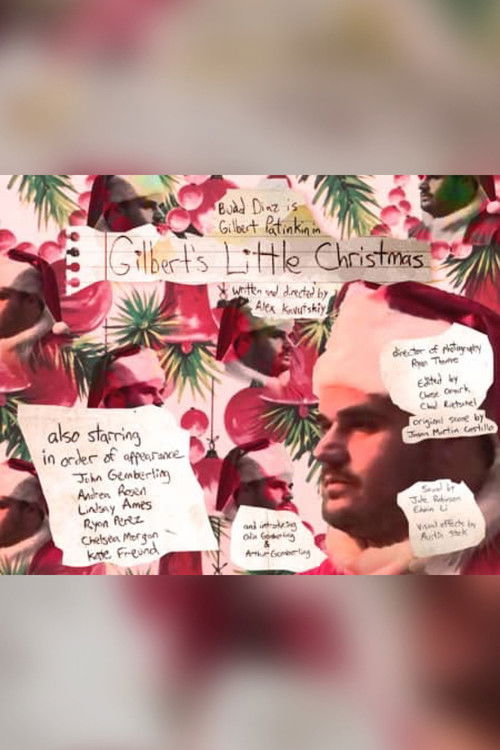 Budd Diaz is
Gilbert Patinkin in
Gilbert's Little Christmas
* written and directed by
Alex Kavutskiy
director of photography
Ryan Thomas
Edited by
Chase
Chad
original score by
Jason Martin Castillo
also starring
in order of appearance
John Gemberling
Andrea Rosen
Lindsay Ames
Ryan Perez
Chelsea Morgan
Katie Freund
and introducing
Gemberling
&
Arthur Gemberling
Sound by
Jude Robinson
Edwin Li
Visual effects by
Austin